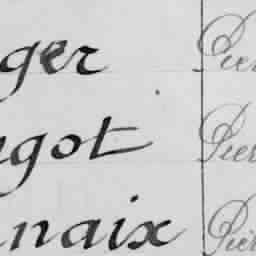 ger Pier
got Pier
naix Pier